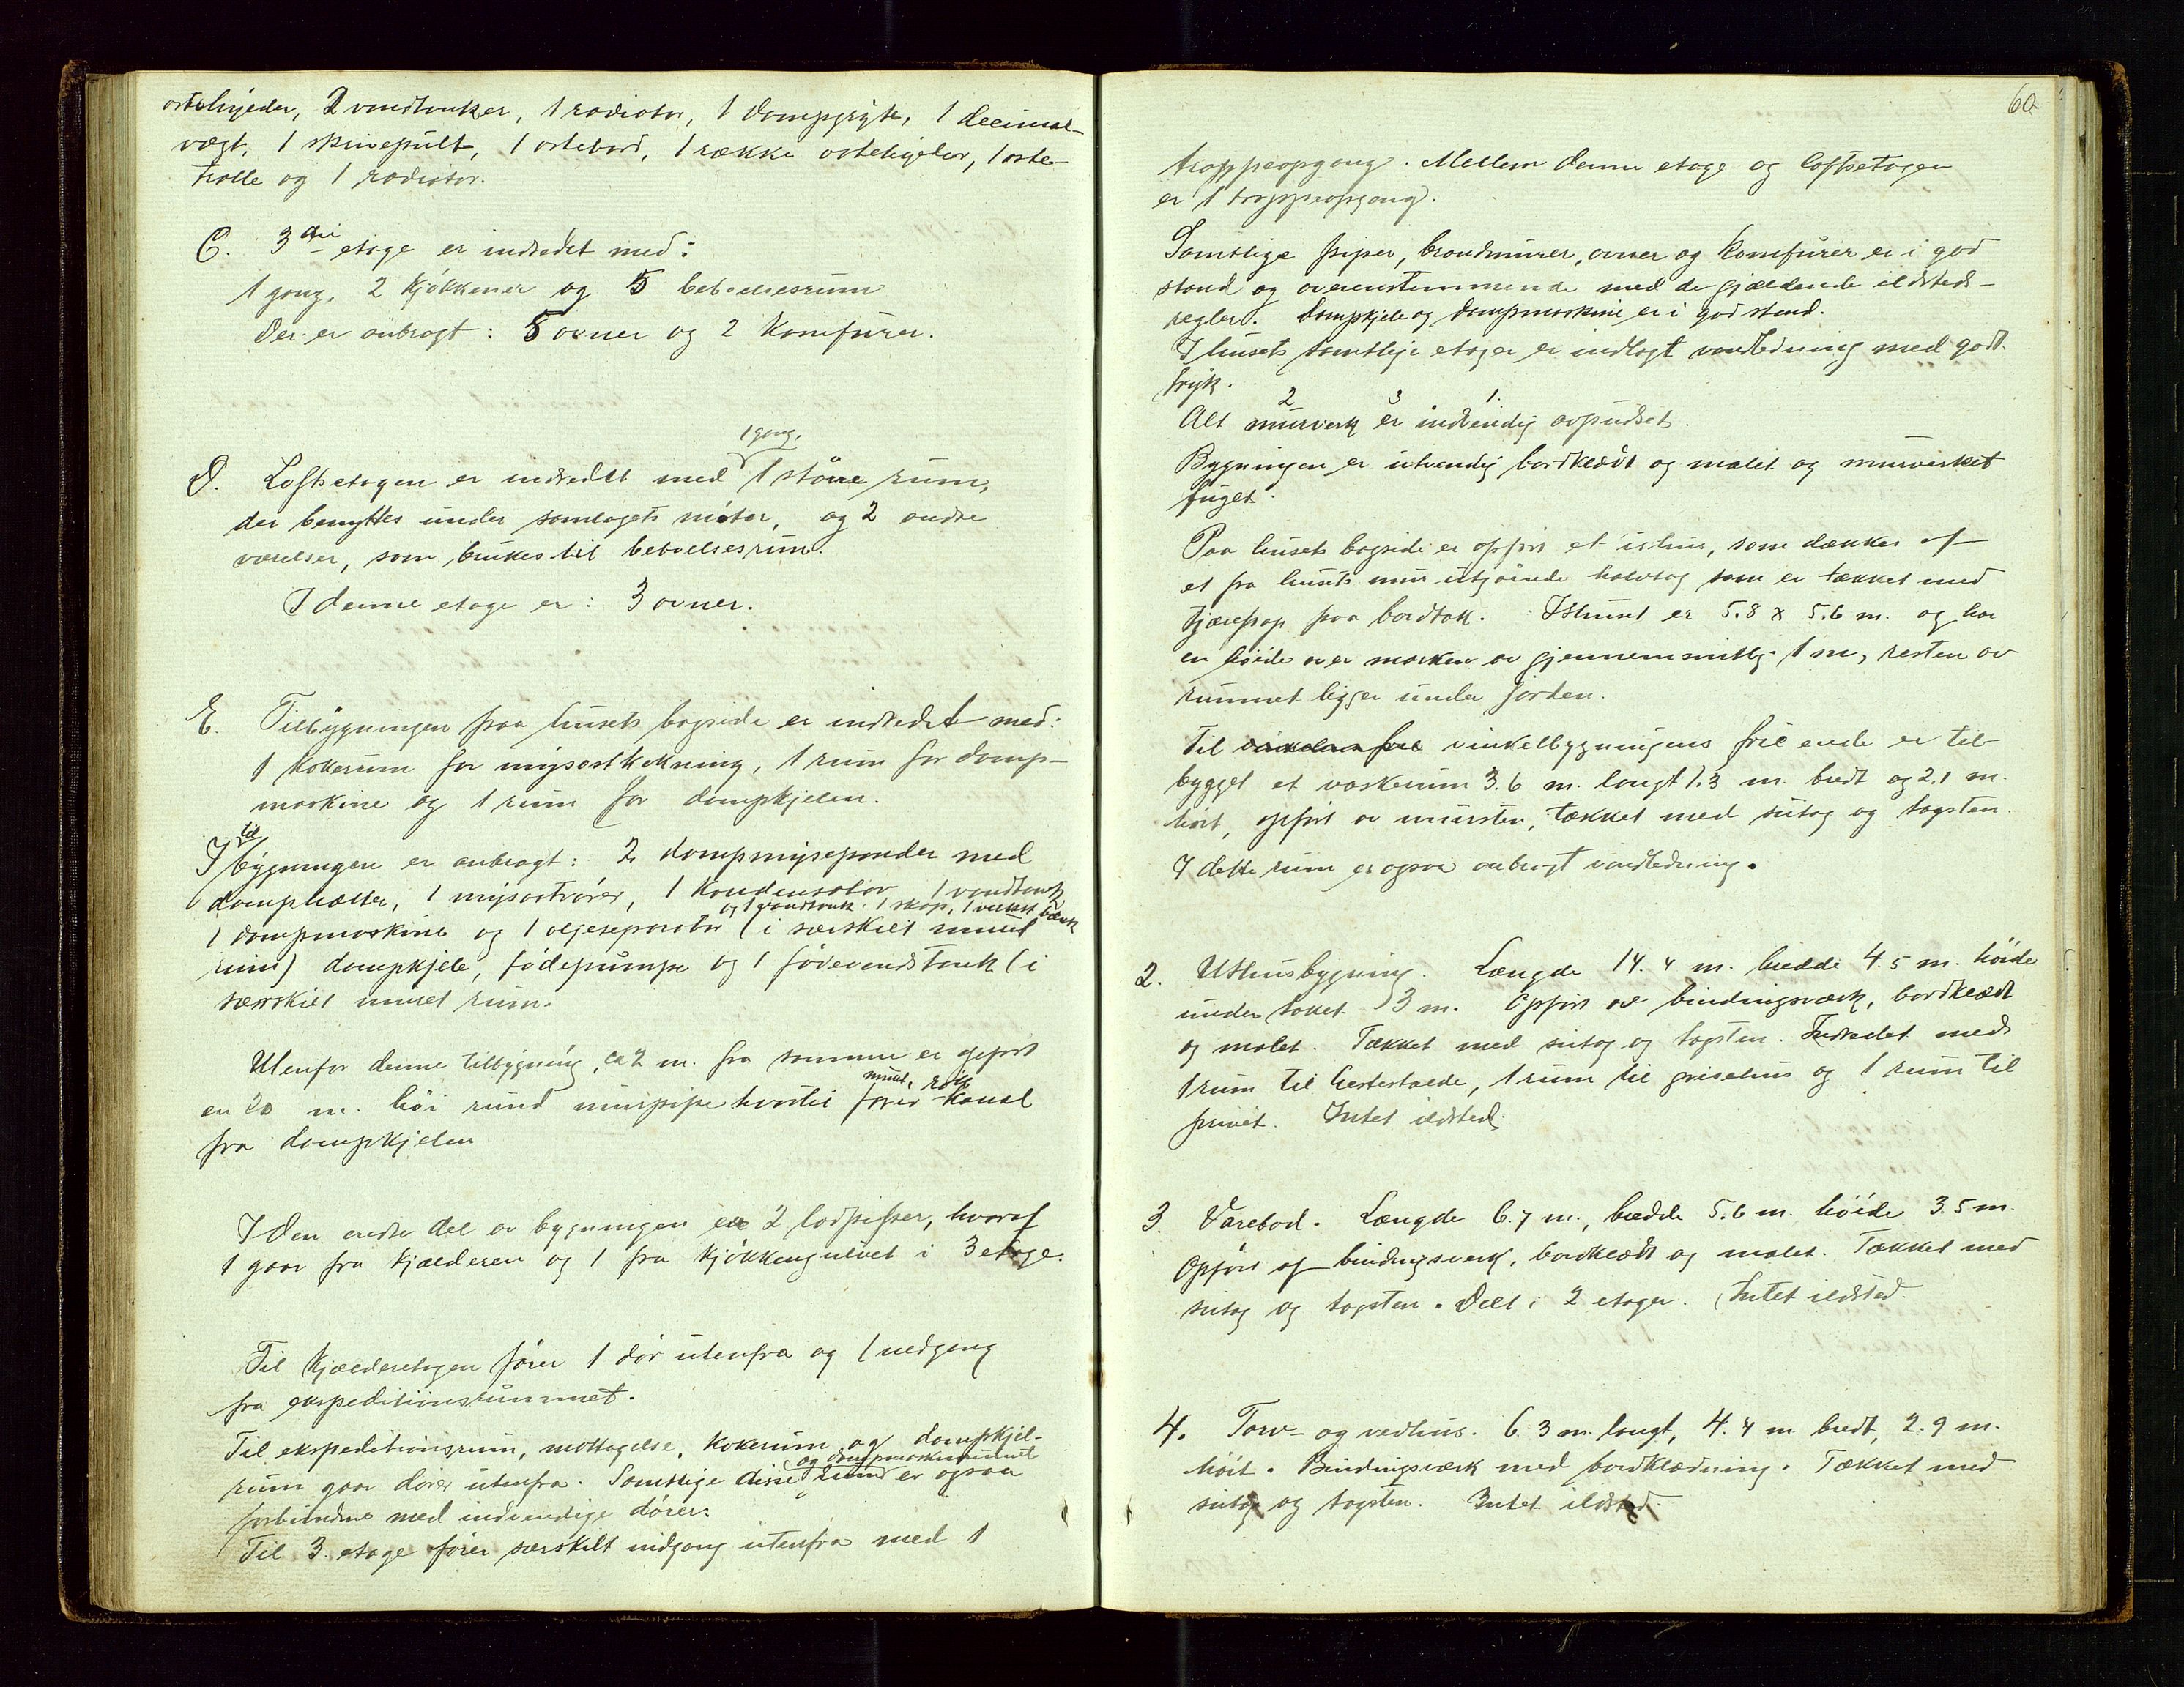 ostehyeder, 2 vandtanker, 1 radiator, 1 dampgryte, 1 decimal-
vægt, 1 skrivepult, 1 ostebord, 1 række ostehyeder, 1 oste
tralle og 1 radiator.
C. 3die etage er indredet med:
1 gang, 2 kjøkkener og 5 beboelsesrum
Der er anbragt: 5 ovner og 2 komfurer.
1 gang,
D. Loftsetagen er indredet med 1 større rum,
der benyttes under samlagets møter, og 2 andre
værelser, som brukes til beboelsesrum.
I denne etage er: 3 ovner.
E. Tilbygningen paa husets bagside er indredet med:
1 kokerum for mysostkokning, 1 rum for damp-
maskine og 1 rum for dampkjelen.
til
I bygningen er anbragt: 2 dampmysepander med
damphætter, 1 mysostrører, 1 kondensator, 1 vandtank
og 1 vandtank. 1 skap, 1 verkst bænk
1 dampmaskine og 1 oljeseparator (i særskilt muret
rum) dampkjele, fødepumpe og 1 fødevandstank (i
særskilt muret rum.
Utenfor denne tilbygning, ca 2 m. fra samme er opført
muret, røk
en 20 m. høi rund murpipe hvortil fører kanal
fra dampkjelen
I den øvre del av bygningen er 2 lodpiper, hvoraf
1 gaar fra kjælderen og 1 fra kjøkkengulvet i 3 etage.
Til kjælderetagen fører 1 dør utenfra og 1 nedgang
fra expeditionsrummet.
Til ekspeditionsrum, mottagelse, kokerum og dampkjel-
og dampmaskinrummet
rum gaar dører utenfra. Samtlige disse rum er ogsaa
forbundne med indvendige dører.
Til 3. etage fører særskilt indgang utenfra med 1
60
trappeopgang. Mellem denne etage og loftsetagen
er 1 trappeopgang.
Samtlige piper, brandmurer, ovner og komfurer er i god
stand og overenstemmende med de gjældende ildsteds-
regler. Dampkjele og dampmaskine er i god stand.
I husets samtlige etager er indlagt vandledning med godt
tryk.
2 3 1.
Alt murverk er indvendig avpudset.
Bygningen er utvendig bordklædt og malet og murverket
fuget.
Paa husets bagside er opført et ishus, som dækkes af
et fra husets mur utgaaende halvtag som er tækket med
tjærepap paa bordtak. Ishuset er 5.8 x 5.6 m. og har
en høide over marken av gjennemsnittlg. 1 m, resten av
rummet ligger under jorden.
Til vinkelbygningens frie ende er til
bygget et vaskerum 3.6 m. langt 1.3 m. bredt og 2.1 m.
høit, opført av mursten, tækket med sutag og tagsten
I dette rum er ogsaa anbragt vandledning.
2. Uthusbygning. Længde 14.4 m. bredde 4.5 m. høide
under taket 3 m. Opført av bindingsværk, bordklædt
og malet. Tækket med sutag og tagsten. Indredet med
1 rum til hestestalde, 1 rum til grisehus og 1 rum til
privet. Intet ildsted.
3. Varebod. Længde 6.7 m., bredde 5.6 m. høide 3.5 m.
Opført af bindingsverk, bordklædt og malet. Tækket med
sutag og tagsten. Delt i 2 etager. Intet ildsted.
4. Torv- og vedhus. 6.3 m. langt, 4.4 m bredt, 2.9 m.
høit. Bindingsværk med bordklædning. Tækket med
sutag og tagsten. Intet ildsted.